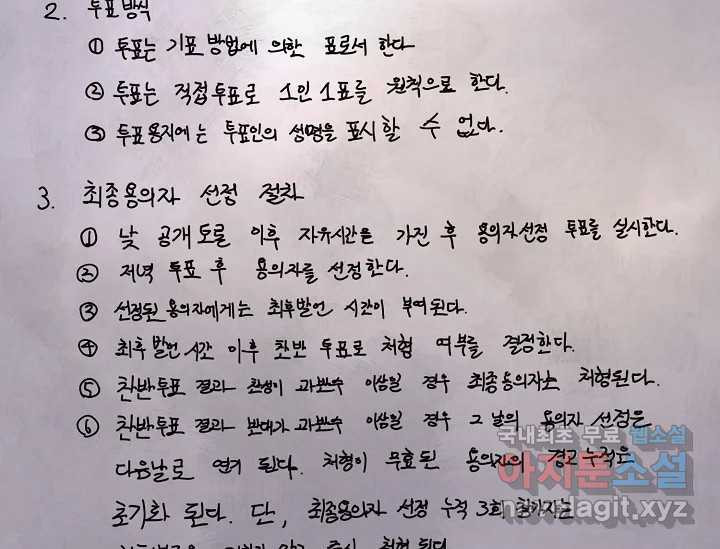 2. 투표방식
① 투표는 기표방법에 의한 표로서 한다
② 투표는 직접투표로 1인 1표를 원칙으로 한다.
③ 투표용지에는 투표인의 성명을 표시할 수 없다.
3. 최종용의자 선정 절차
① 낮 공개토론 이후 자유시간을 가진 후 용의자선정 투표를 실시한다.
② 저녁 투표 후 용의자를 선정한다.
③ 선정된 용의자에게는 최후발언 시간이 부여된다.
④ 최후발언시간 이후 찬반 투표로 처형 여부를 결정한다.
⑤ 찬반투표 결과 찬성이 과반수 이상일 경우 최종용의자는 처형된다.
⑥ 찬반투표 결과 반대가 과반수 이상일 경우 그 날의 용의자 선정은
국내최초 무료 웹소설
다음날로 연기 된다. 처형이 무효된 용의자의 경고누적은
아지툰소설
초기화 된다. 단, 최종용의자 선정 누적 3회
novelagit.xyz